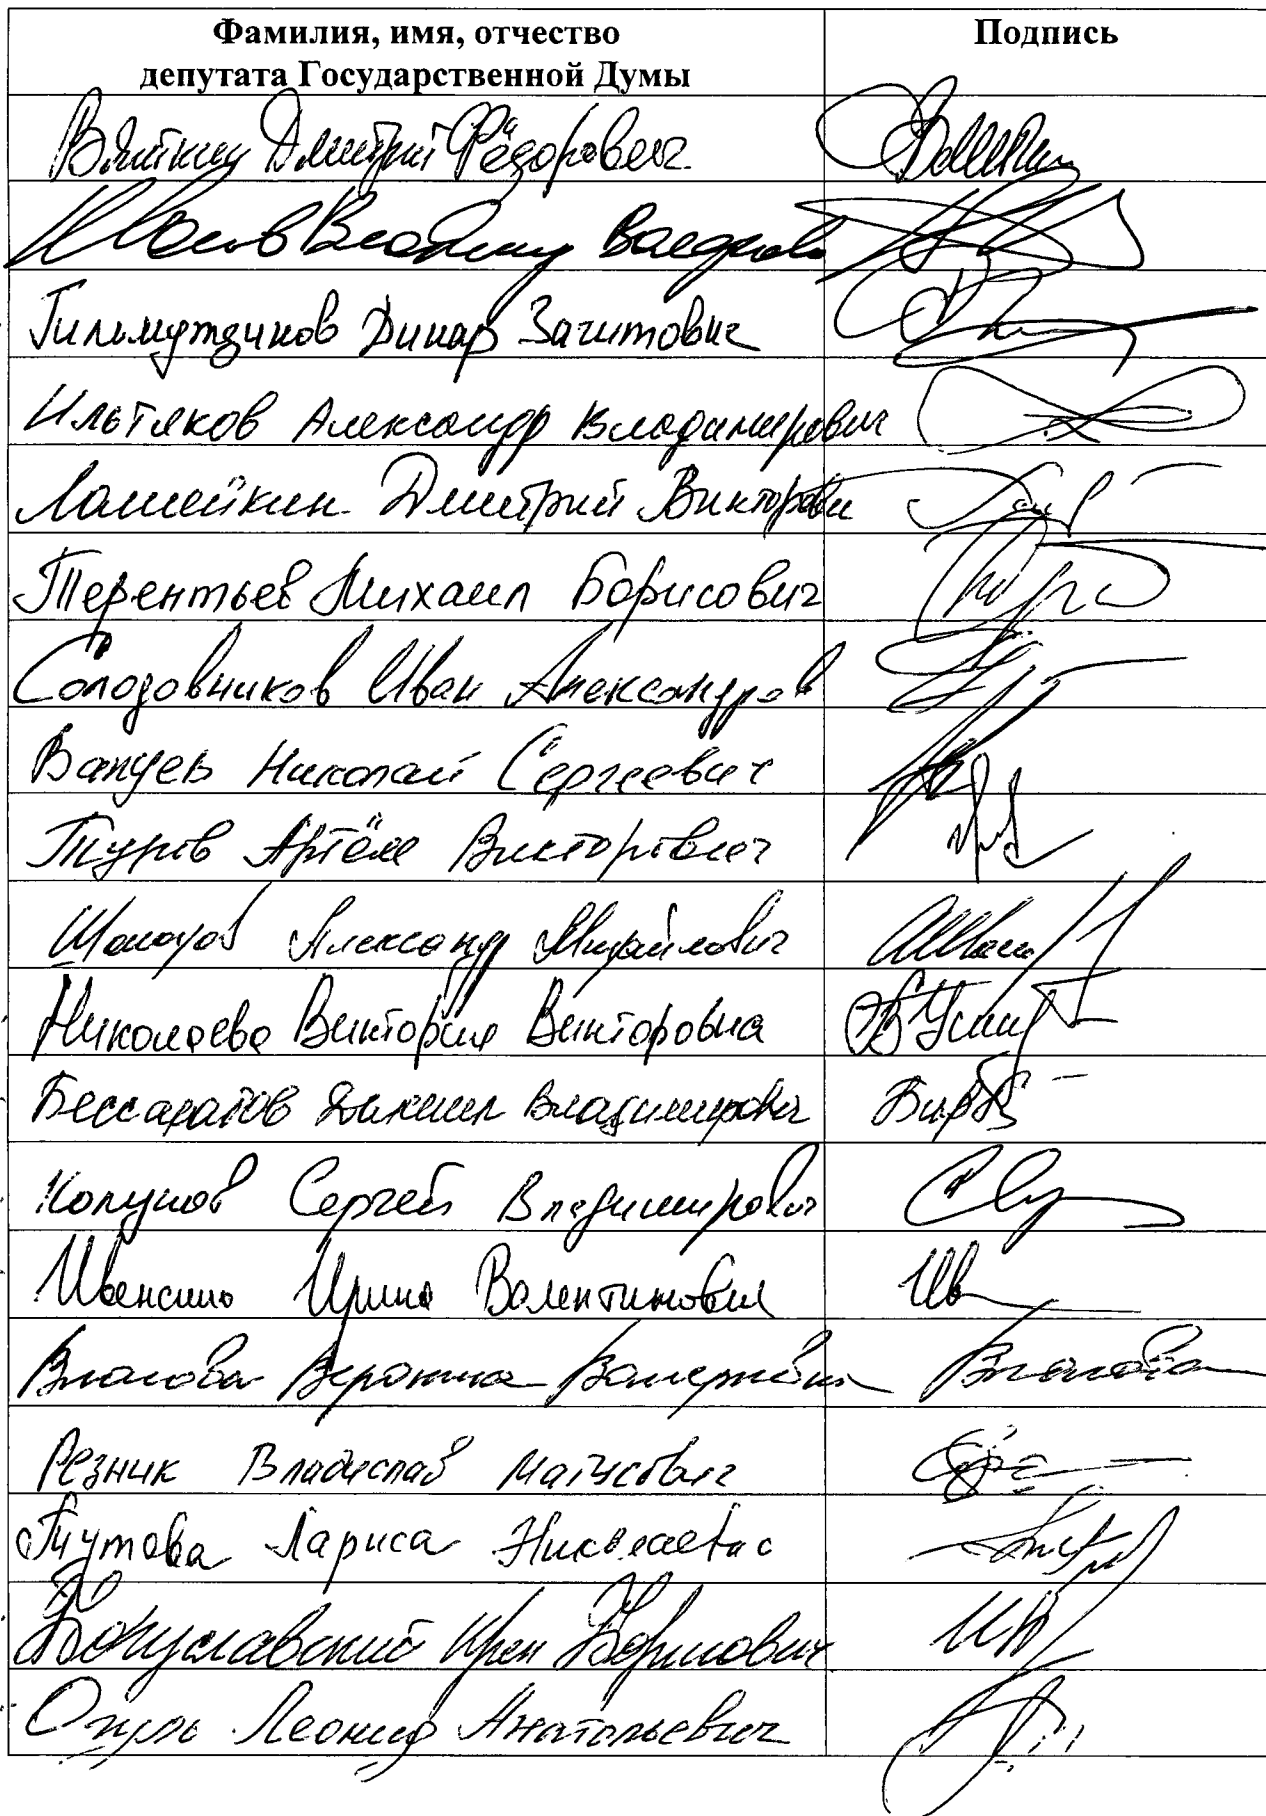 Фамилия, имя, отчество
депутата Государственной Думы
Подпись
Вяткин Дмитрий Фёдорович
Гильмутдинов Динар Загитович
Ильтяков Александр Владимирович
Ламейкин Дмитрий Викторови
Терентьев Михаил Борисович
Солодовников Иван Александров
Валуев Николай Сергеевич
Туров Артём Викторович
Шолохов Александр Михайлович
Николаева Виктория Викторовна
Бессарабов Даниил Владимирович
Колунов Сергей Владимирович
Ивенских Ирина Валентиновна
Власова Вероника Валериевна Власова
Резник Владислав Матусович
Тутова Лариса Николаевна
Богуславский Ирек Борисович
Огуль Леонид Анатольевич